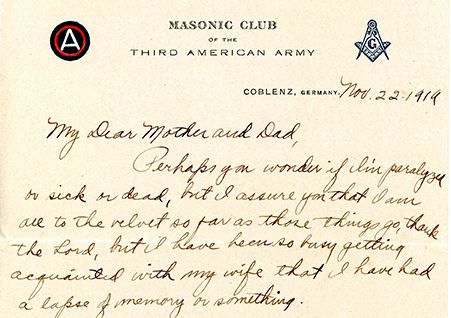 MASONIC CLUB
OF THE
THIRD AMERICAN ARMY
A
G
COBLENZ, GERMANY, Nov. 22-1919
My Dear Mother and Dad,
Perhaps you wonder if I'm paralyzed
or sick or dead, but I assure you that I am
all to the velvet so far as those things go, thank
the Lord, but I have been so busy getting
acquainted with my wife that I have had
a lapse of memory or something.